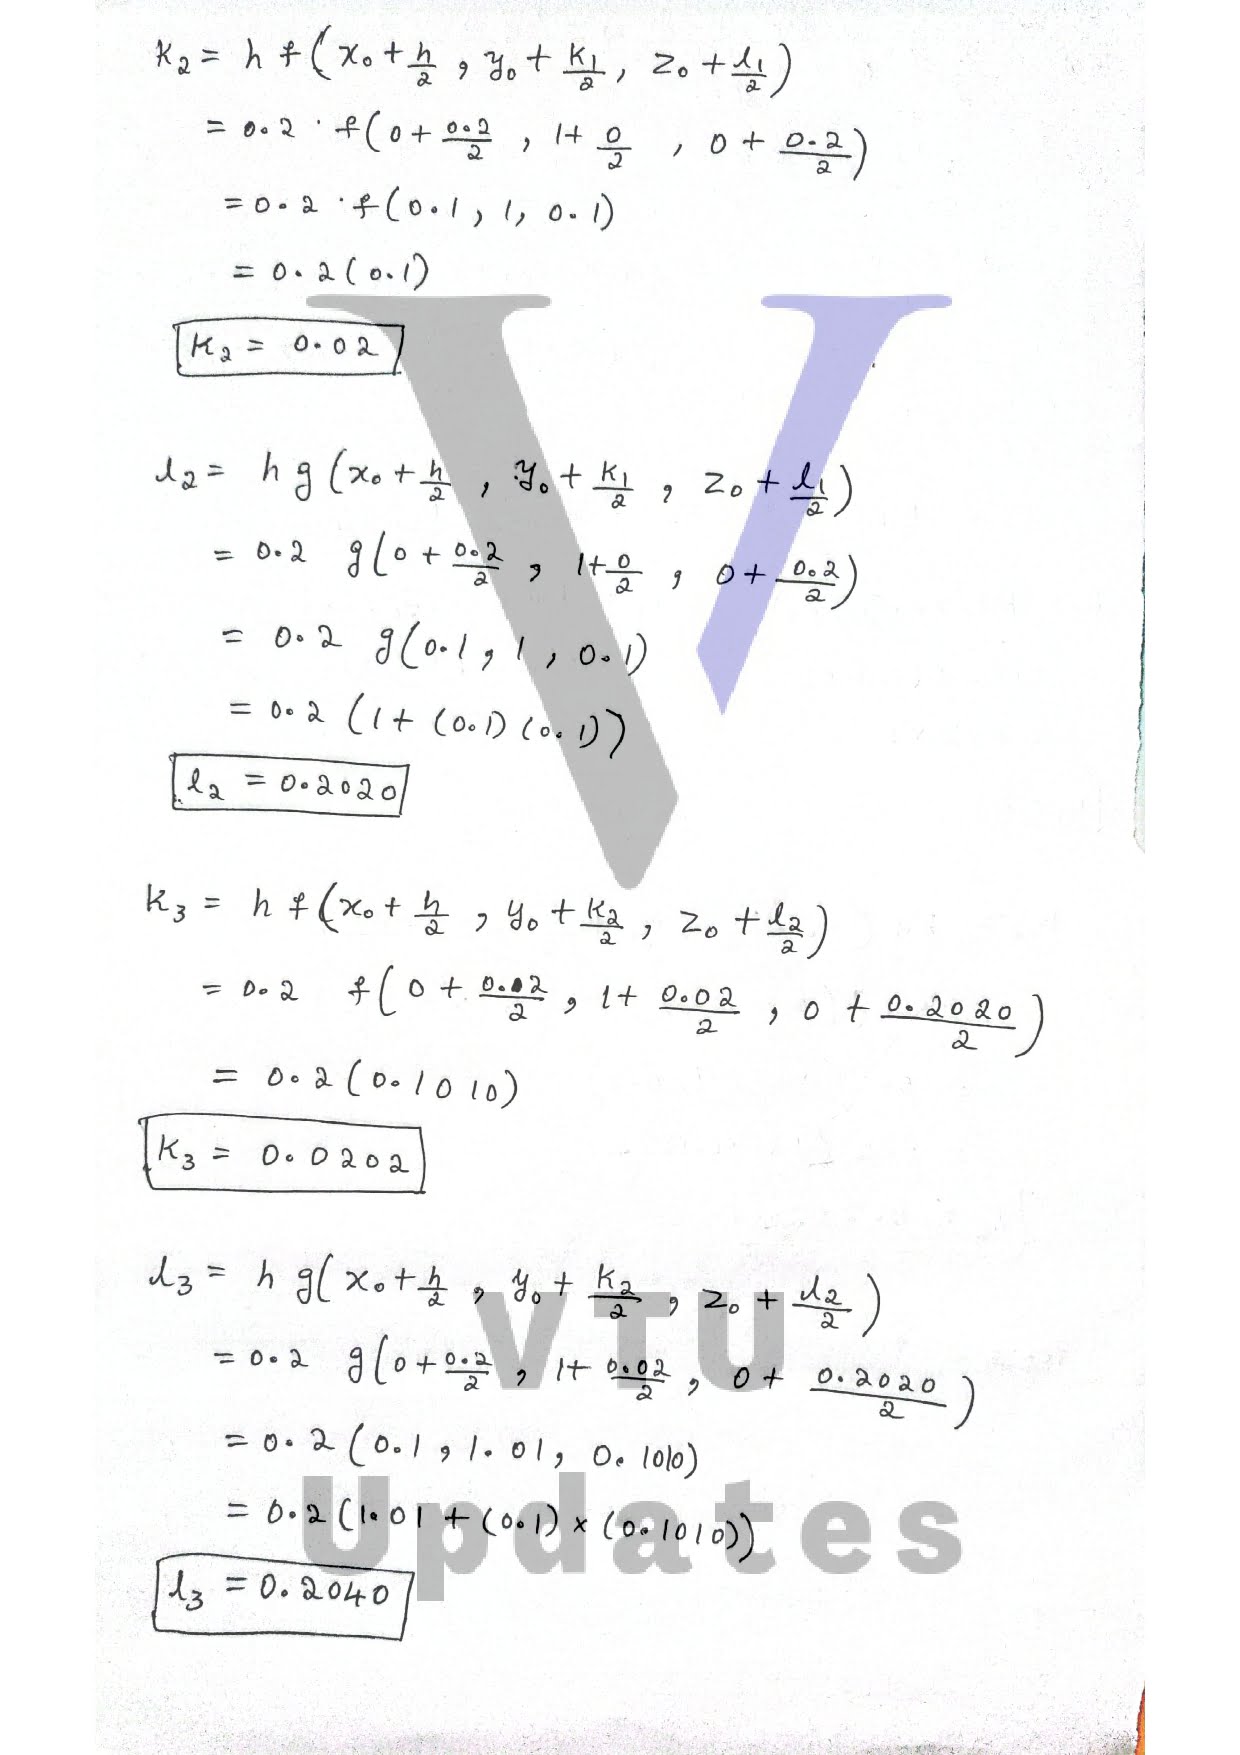 K₂ = h f(x₀ + h/2 , y₀ + K₁/2 , z₀ + l₁/2)
= 0.2 · f(0 + 0.2/2 , 1+ 0/2 , 0 + 0.2/2)
= 0.2 · f(0.1, 1, 0.1)
= 0.2(0.1)
K₂ = 0.02
l₂ = h g(x₀ + h/2 , y₀ + K₁/2 , z₀ + l₁/2)
= 0.2 g(0 + 0.2/2 , 1+0/2 , 0 + 0.2/2)
= 0.2 g(0.1, 1, 0.1)
= 0.2 (1 + (0.1)(0.1))
l₂ = 0.2020
K₃ = h f(x₀ + h/2 , y₀ + K₂/2 , z₀ + l₂/2)
= 0.2 f(0 + 0.02/2 , 1+ 0.02/2 , 0 + 0.2020/2)
= 0.2(0.1010)
K₃ = 0.0202
l₃ = h g(x₀ + h/2 , y₀ + K₂/2 , z₀ + l₂/2)
VTU
= 0.2 g(0+0.2/2 , 1+ 0.02/2 , 0+ 0.2020/2)
= 0.2(0.1, 1.01, 0.1010)
Updates
= 0.2(1.01 + (0.1) × (0.1010))
l₃ = 0.2040